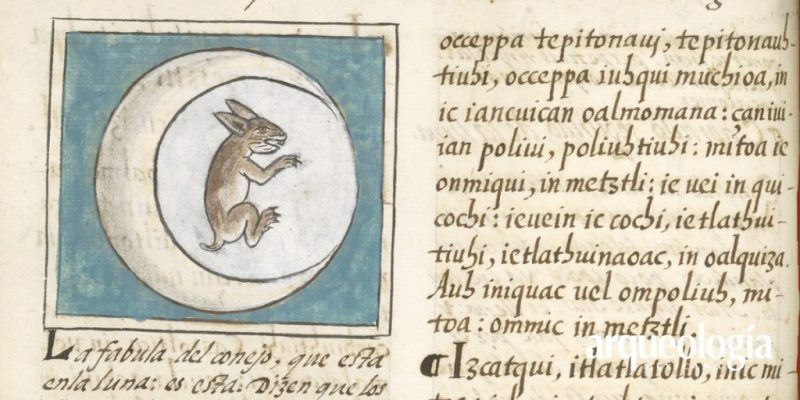 La fabula del conejo, que esta
enla luna: es esta. Dizen que los
occeppa tepitonavj, tepitonauh-
tiuhi, occeppa iuhqui muchioa, in
ic iancuican oalmomana: canivi-
ian polivi, poliuhtiuhi: mitoa ie
onmiqui, in metztli: ie uei in qui-
cochi: ieuein ic cochi, ietlathui-
tiuhi, ietlathuinaoac, in oalquiza.
Auh iniquac vel ompoliuh, mi-
toa: ommic in metztli.
¶ Izcatqui, itlatlatollo, inic mi-
arqueología